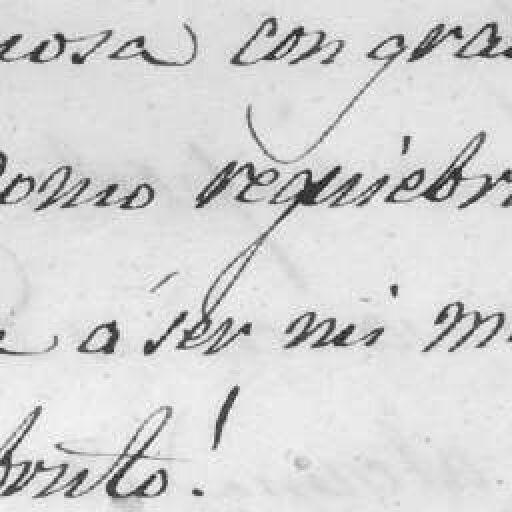 uosa con gra
como requiebr
á ser mi m
bruto!